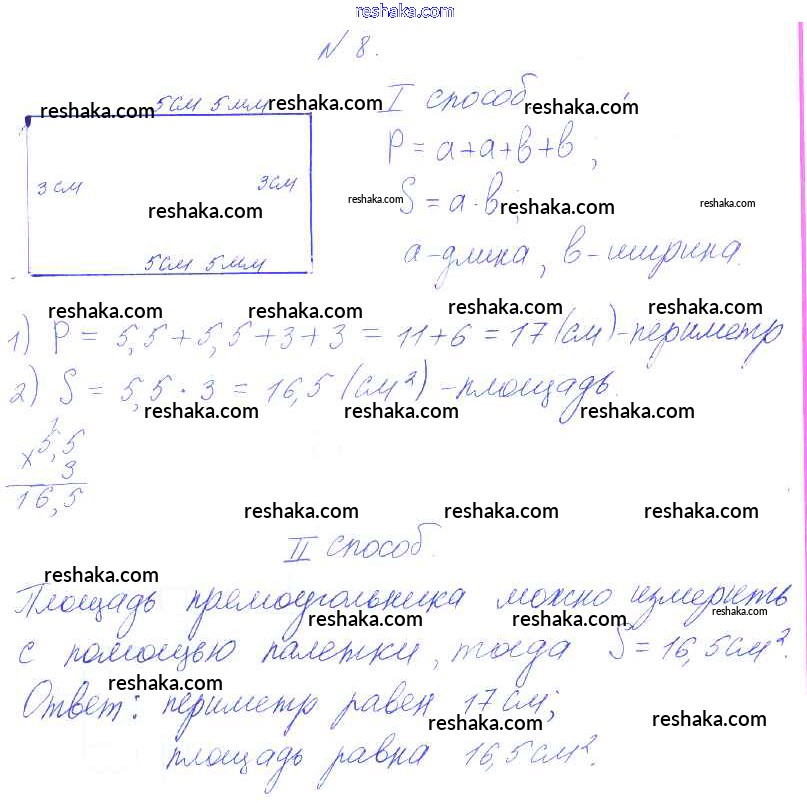 reshaka.com
N 8.
5см 5мм
3см
3см
5см 5мм
I способ
P = a+a+в+в;
S = a·в;
a-длина, в-ширина.
1) P = 5,5+5,5+3+3 = 11+6 = 17 (см)-периметр
2) S = 5,5·3 = 16,5 (см²) -площадь.
1
× 5,5
3
16,5
II способ.
Площадь прямоугольника можно измерить
с помощью палетки, тогда S = 16,5см².
Ответ: периметр равен 17см;
площадь равна 16,5см².
reshaka.com reshaka.com reshaka.com
reshaka.com reshaka.com reshaka.com reshaka.com
reshaka.com reshaka.com reshaka.com reshaka.com
reshaka.com reshaka.com reshaka.com
reshaka.com reshaka.com reshaka.com
reshaka.com
reshaka.com reshaka.com reshaka.com
reshaka.com
reshaka.com reshaka.com